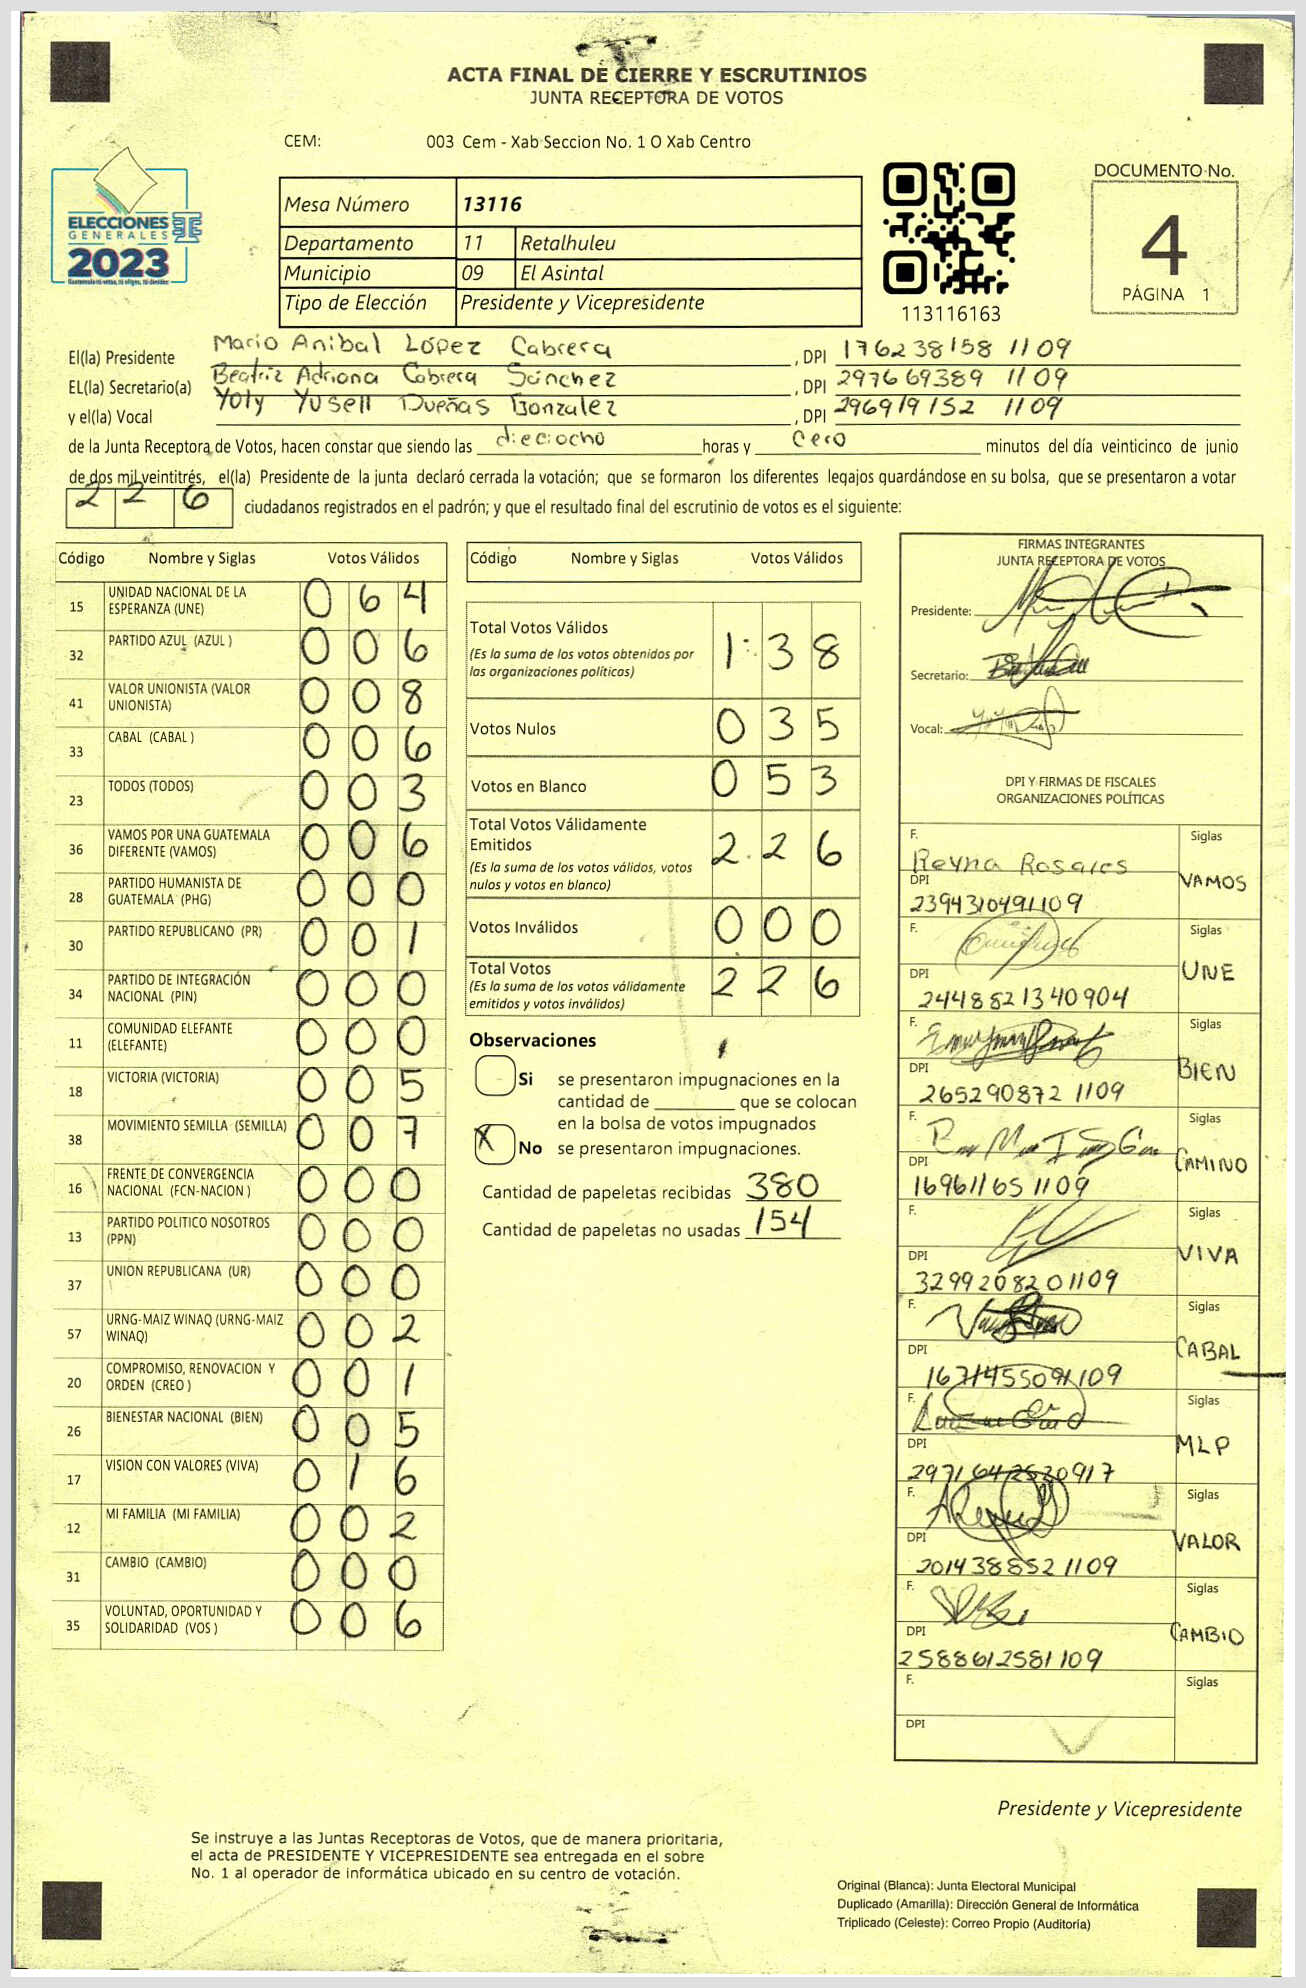 ACTA FINAL DE CIERRE Y ESCRUTINIOS
JUNTA RECEPTORA DE VOTOS
CEM: 003 Cem - Xab Seccion No. 1 O Xab Centro
ELECCIONES
GENERALES
2023
Mesa Número 13116
Departamento 11 Retalhuleu
Municipio 09 El Asintal
Tipo de Elección Presidente y Vicepresidente
113116163
DOCUMENTO No.
4
PÁGINA 1
El(la) Presidente Mario Anibal López Cabrera, DPI 176238158 1109
EL(la) Secretario(a) Beatriz Adriana Cabrera Sánchez, DPI 297669389 1109
y el(la) Vocal Yoly Yusell Dueñas Gonzalez, DPI 296919152 1109
de la Junta Receptora de Votos, hacen constar que siendo las dieciocho horas y cero minutos del día veinticinco de junio
de dos mil veintitrés, el(la) Presidente de la junta declaró cerrada la votación; que se formaron los diferentes legajos quardándose en su bolsa, que se presentaron a votar
226 ciudadanos registrados en el padrón; y que el resultado final del escrutinio de votos es el siguiente:
Código Nombre y Siglas Votos Válidos
15 UNIDAD NACIONAL DE LA ESPERANZA (UNE) 064
32 PARTIDO AZUL (AZUL ) 006
41 VALOR UNIONISTA (VALOR UNIONISTA) 008
33 CABAL (CABAL ) 006
23 TODOS (TODOS) 003
36 VAMOS POR UNA GUATEMALA DIFERENTE (VAMOS) 006
28 PARTIDO HUMANISTA DE GUATEMALA (PHG) 000
30 PARTIDO REPUBLICANO (PR) 001
34 PARTIDO DE INTEGRACIÓN NACIONAL (PIN) 000
11 COMUNIDAD ELEFANTE (ELEFANTE) 000
18 VICTORIA (VICTORIA) 005
38 MOVIMIENTO SEMILLA (SEMILLA) 007
16 FRENTE DE CONVERGENCIA NACIONAL (FCN-NACION ) 000
13 PARTIDO POLITICO NOSOTROS (PPN) 000
37 UNION REPUBLICANA (UR) 000
57 URNG-MAIZ WINAQ (URNG-MAIZ WINAQ) 002
20 COMPROMISO, RENOVACION Y ORDEN (CREO ) 001
26 BIENESTAR NACIONAL (BIEN) 005
17 VISION CON VALORES (VIVA) 016
12 MI FAMILIA (MI FAMILIA) 002
31 CAMBIO (CAMBIO) 000
35 VOLUNTAD, OPORTUNIDAD Y SOLIDARIDAD (VOS ) 006
Código Nombre y Siglas Votos Válidos
Total Votos Válidos 138
(Es la suma de los votos obtenidos por
las organizaciones políticas)
Votos Nulos 035
Votos en Blanco 053
Total Votos Válidamente
Emitidos 226
(Es la suma de los votos válidos, votos
nulos y votos en blanco)
Votos Inválidos 000
Total Votos 226
(Es la suma de los votos válidamente
emitidos y votos inválidos)
Observaciones
Si se presentaron impugnaciones en la
cantidad de ________ que se colocan
en la bolsa de votos impugnados
X No se presentaron impugnaciones.
Cantidad de papeletas recibidas 380
Cantidad de papeletas no usadas 154
FIRMAS INTEGRANTES
JUNTA RECEPTORA DE VOTOS
Presidente:
Secretario:
Vocal:
DPI Y FIRMAS DE FISCALES
ORGANIZACIONES POLÍTICAS
F. Reyna Rosales Siglas
DPI 2394310491109 VAMOS
F. Siglas
DPI 2448821340904 UNE
F. Siglas
DPI 265290872 1109 BIEN
F. Siglas
DPI 169611651109 CAMINO
F. Siglas
DPI 3299208201109 VIVA
F. Siglas
DPI 1671455091109 CABAL
F. Siglas
DPI 2971642520917 MLP
F. Siglas
DPI 201438852 1109 VALOR
F. Siglas
DPI 2588612581109 CAMBIO
F. Siglas
DPI
Presidente y Vicepresidente
Se instruye a las Juntas Receptoras de Votos, que de manera prioritaria,
el acta de PRESIDENTE Y VICEPRESIDENTE sea entregada en el sobre
No. 1 al operador de informática ubicado en su centro de votación.
Original (Blanca): Junta Electoral Municipal
Duplicado (Amarilla): Dirección General de Informática
Triplicado (Celeste): Correo Propio (Auditoría)